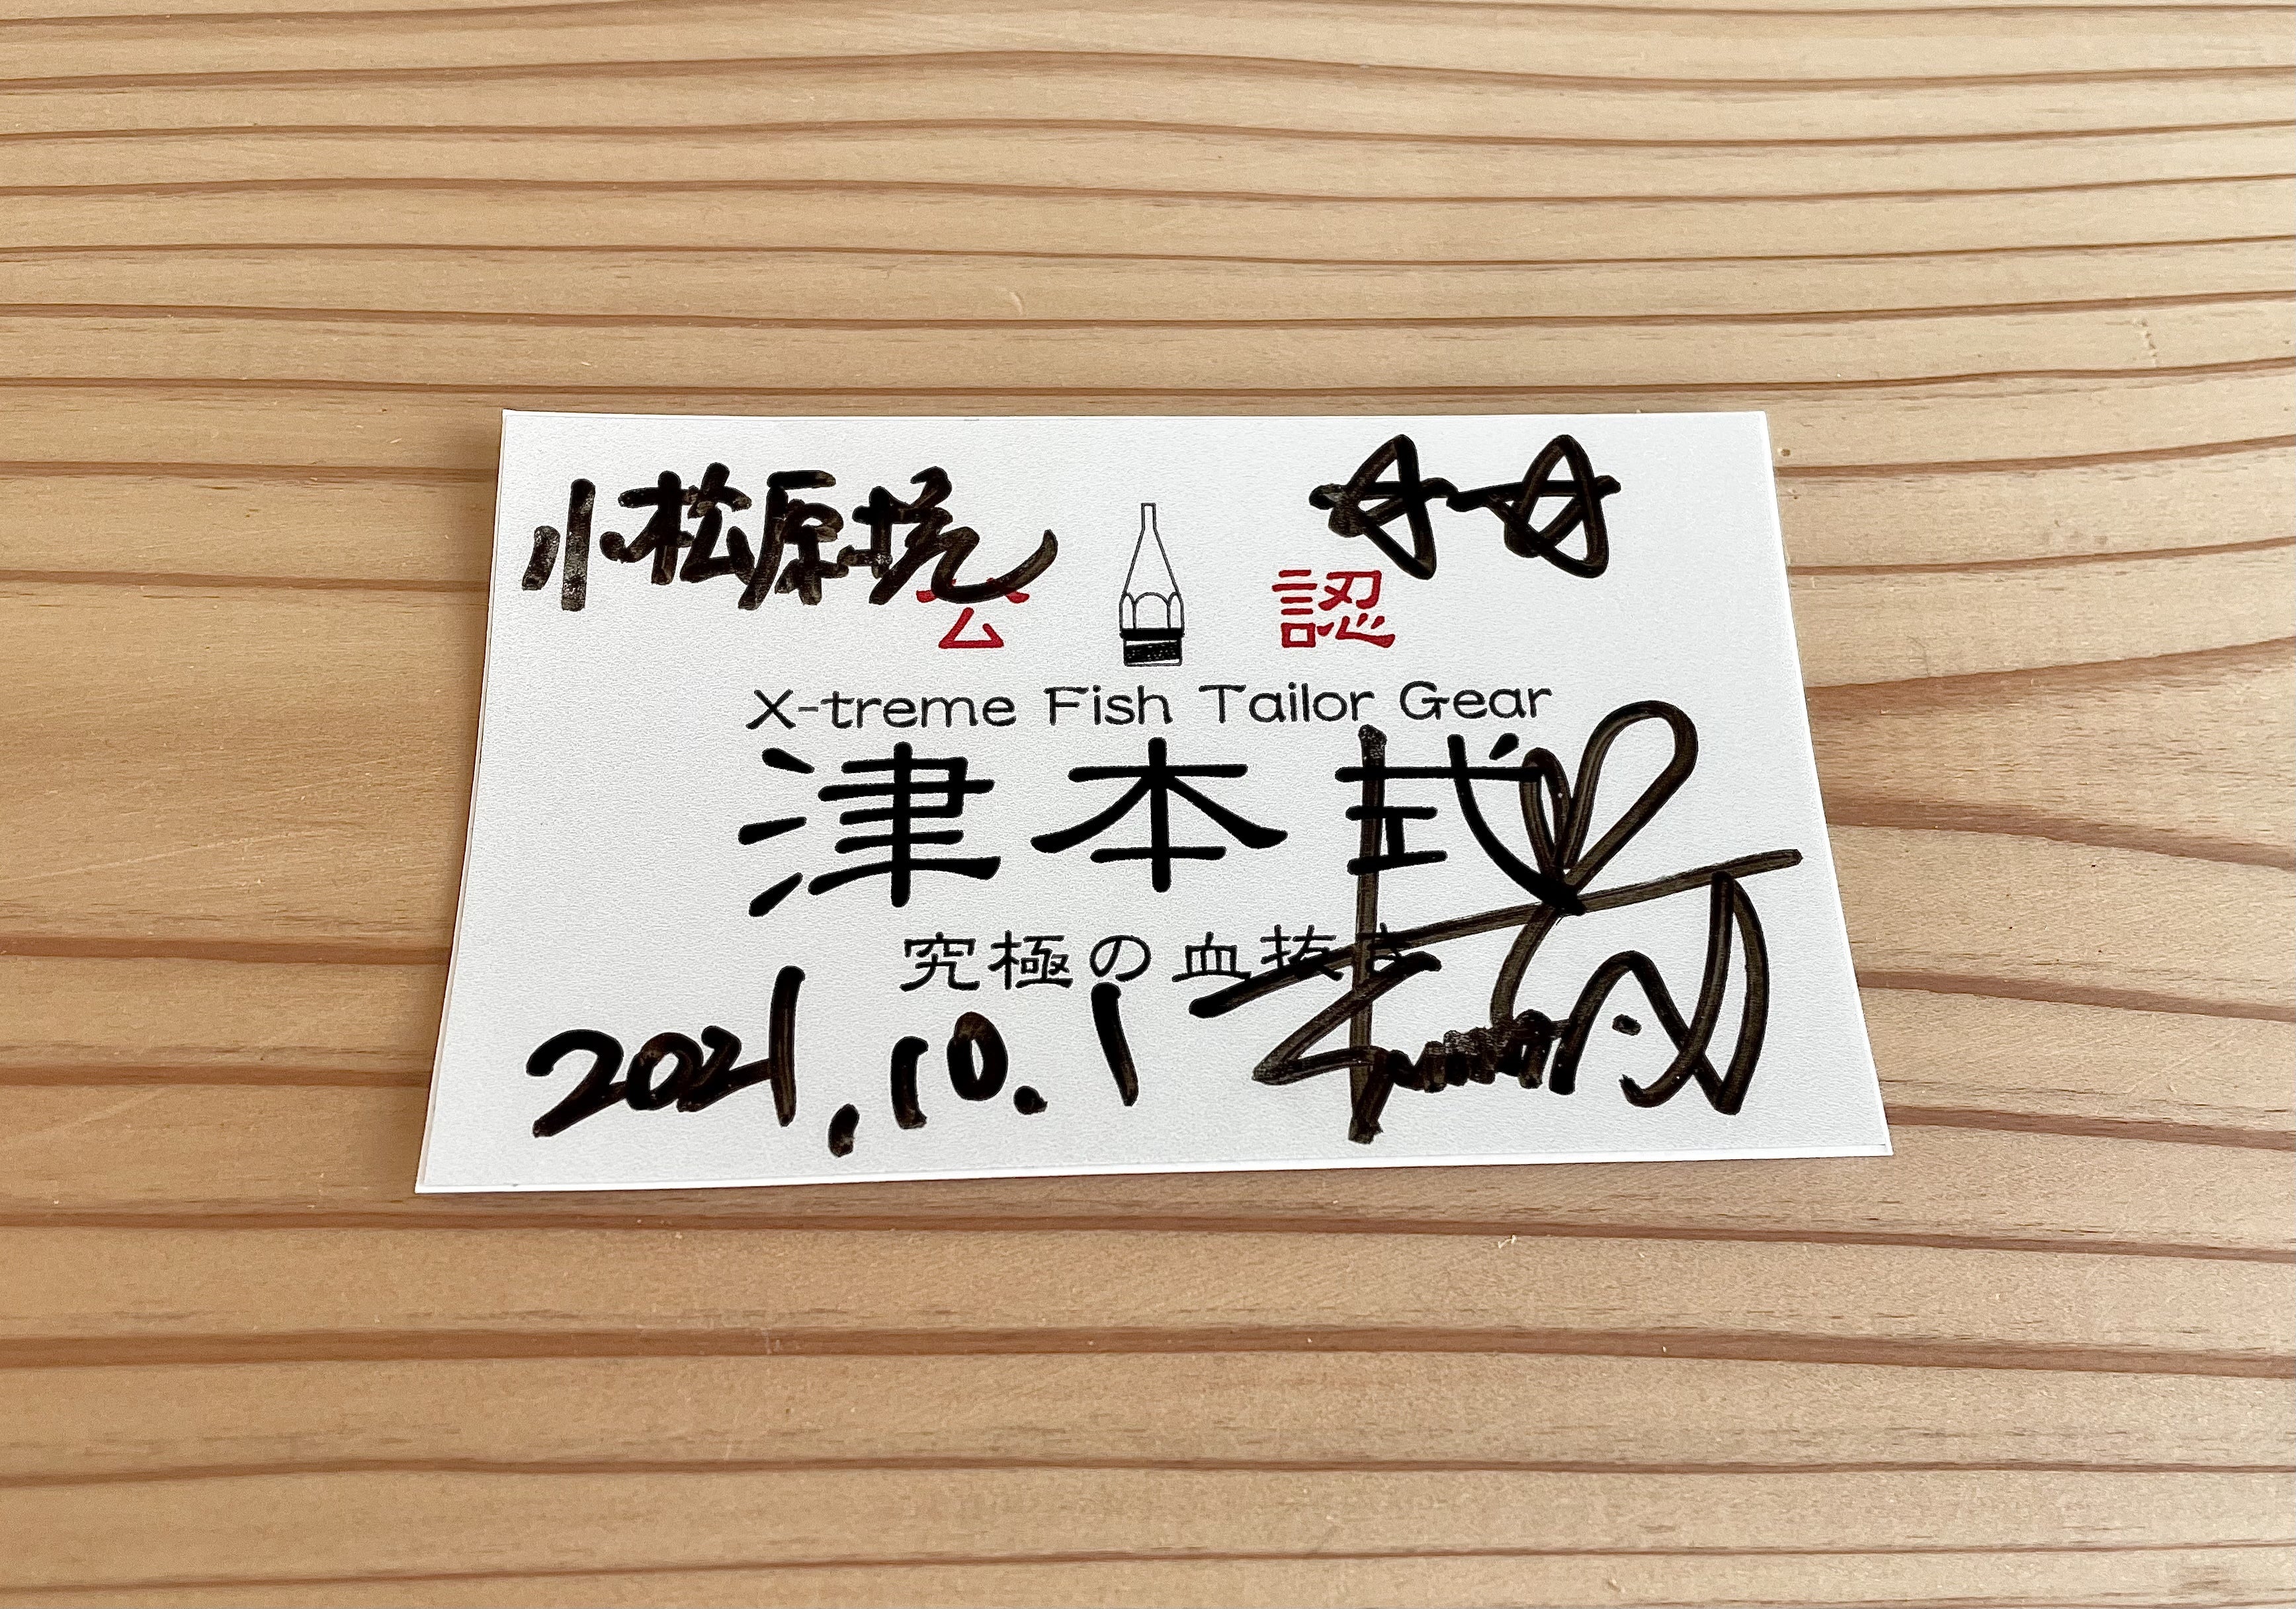 小松原 ☆☆
公 認
X-treme Fish Tailor Gear
津本式
究極の血抜き
2021.10.1